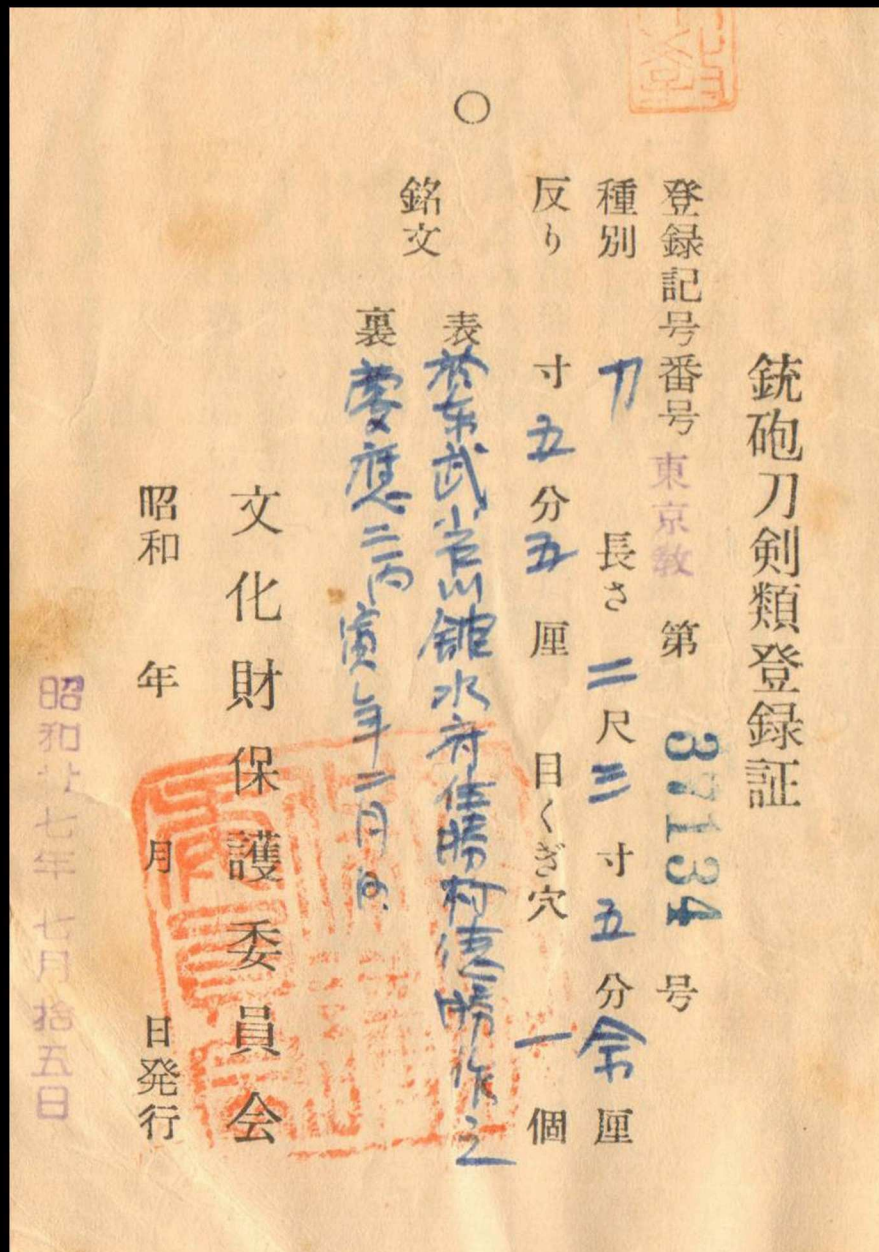 銃砲刀剣類登録証
登録記号番号 東京教 第 37134 号
種別 刀 長さ 二尺三寸五分令厘
反り 寸五分五厘 目くぎ穴 一個
銘文
表 於東武小石川館水府住勝村徳勝作之
裏 慶應二丙寅年二月日
文化財保護委員会
昭和 年 月 日発行
昭和廿七年 七月拾五日